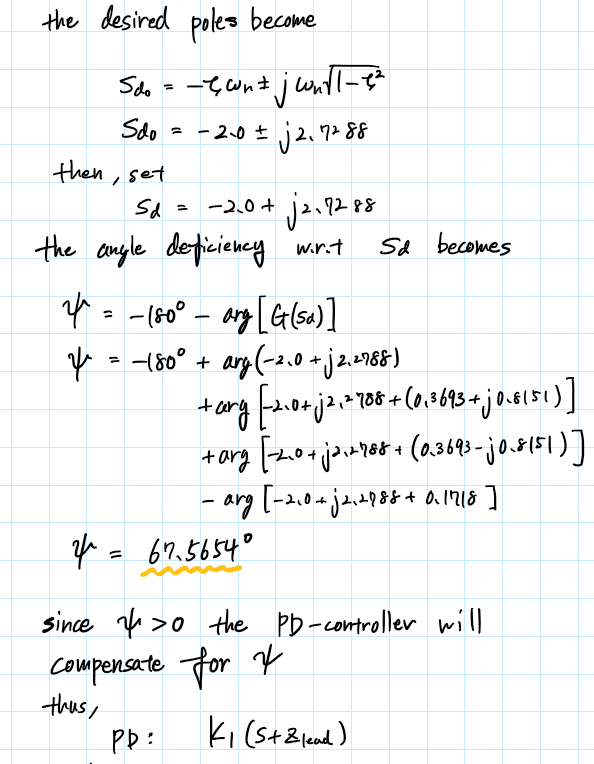 the desired poles become
Sd₀ = -ζωn ± jωn√1-ζ²
Sd₀ = -2.0 ± j2.7288
then, set
Sd = -2.0 + j2.7288
the angle deficiency w.r.t Sd becomes
ψ = -180° - arg[G(sd)]
ψ = -180° + arg(-2.0 + j2.2788)
+ arg[-2.0 + j2.2788 + (0.3693 + j0.8151)]
+ arg[-2.0 + j2.2788 + (0.3693 - j0.8151)]
- arg[-2.0 + j2.2788 + 0.1718]
ψ = 67.5654°
since ψ > 0 the PD-controller will
compensate for ψ
thus,
PD: K₁(s+Zlead)